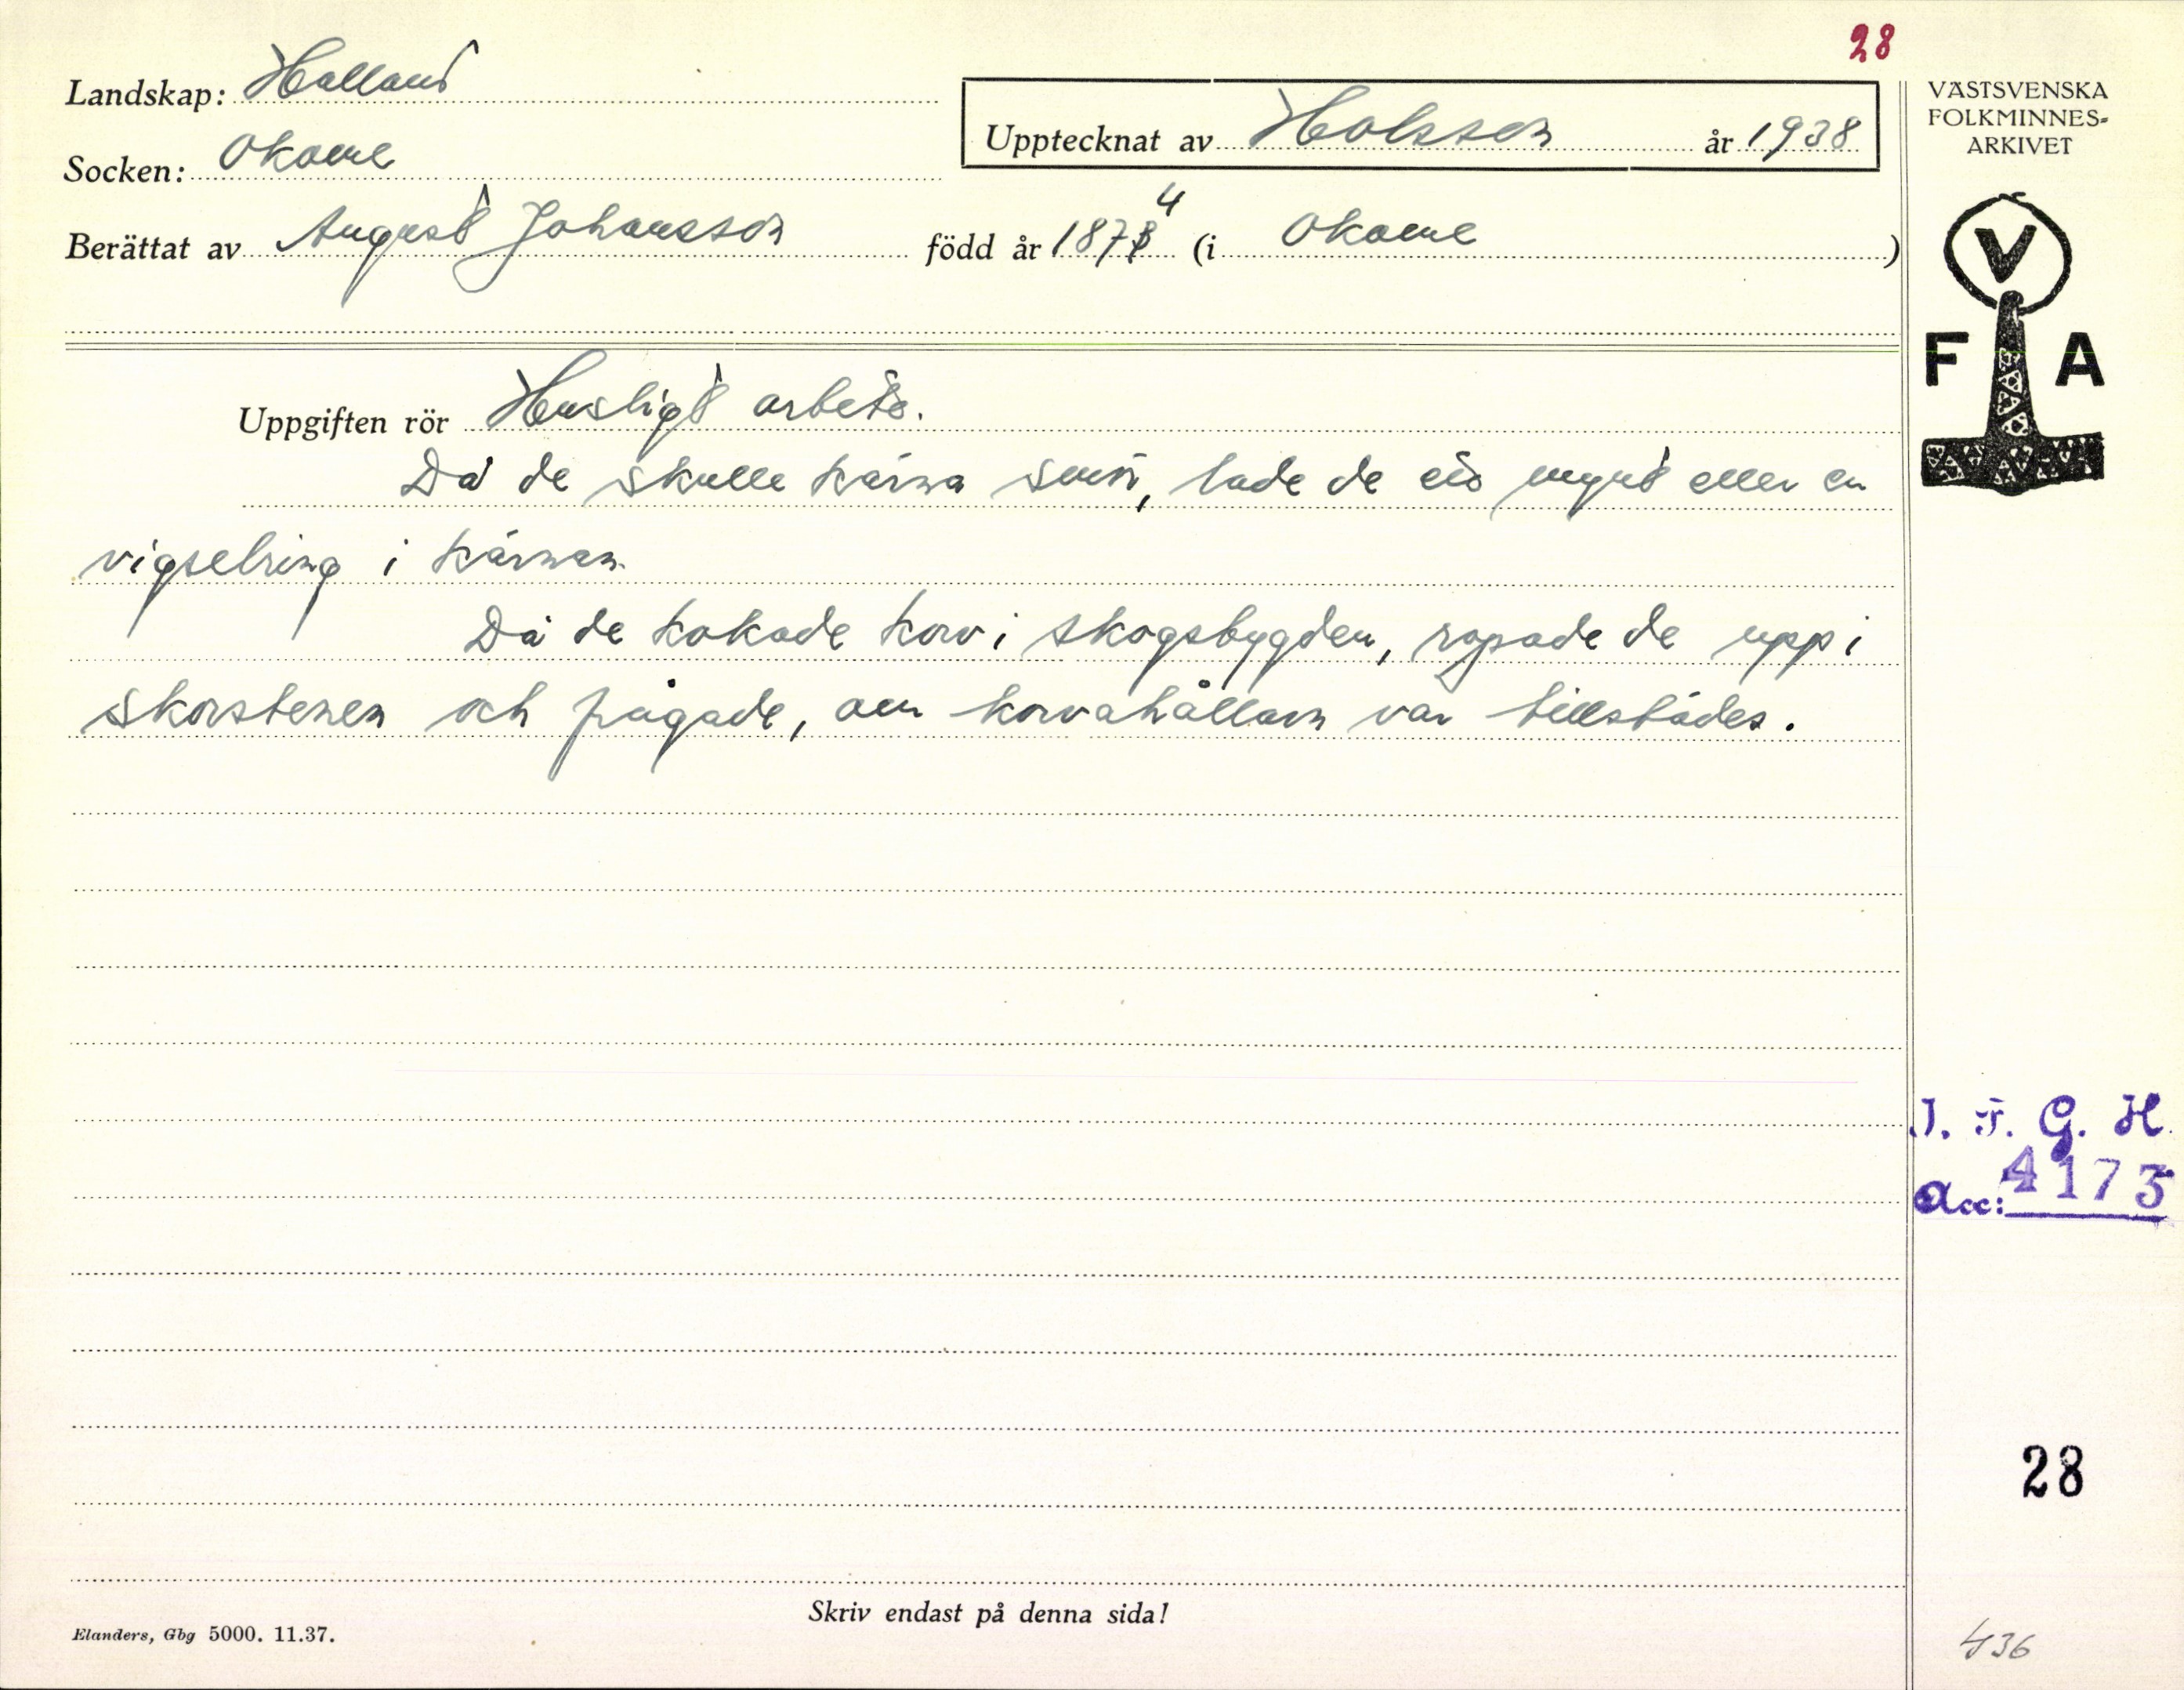 28
Landskap: Halland
Socken: Okome
Upptecknat av Holsson år 1938
VÄSTSVENSKA
FOLKMINNES-
ARKIVET
Berättat av August Johansson född år 1874 (i Okome)
V
F A
Uppgiften rör Husligt arbete.
Då de skulle kärna smör, lade de ett mynt eller en
vigselring i kärnan.
Då de kokade korv i skogsbygden, ropade de upp i
skorstenen och frågade, om korvahållarn var tillstädes.
I. F. G. H.
Acc: 4175
28
Skriv endast på denna sida!
Elanders, Gbg 5000. 11.37.
436